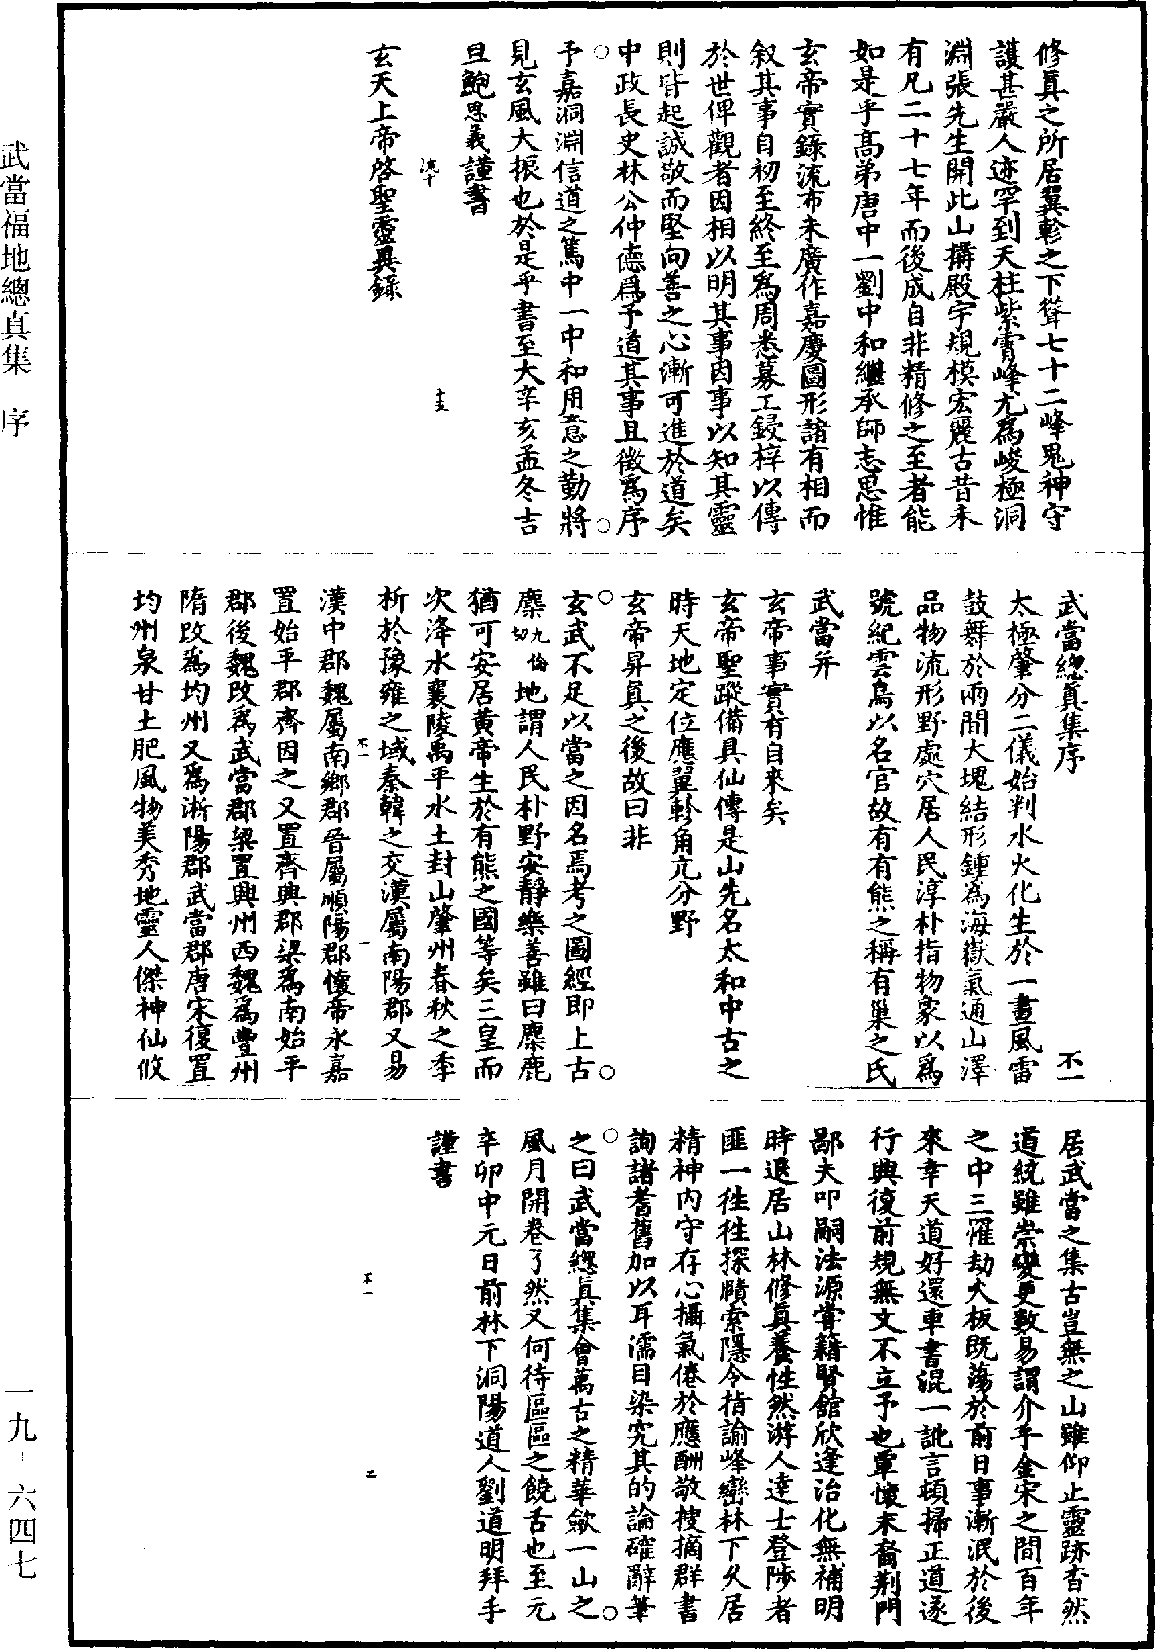 修真之所居翼軫之下聳七十二峰鬼神守
護甚嚴人迹罕到天柱紫霄峰尤為峻極洞
淵張先生開此山搆殿宇規模宏麗古昔未
有凡二十七年而後成自非精修之至者能
如是乎高弟唐中一劉中和繼承師志思惟
玄帝實錄流布未廣作嘉慶圖形諸有相而
叙其事自初至終至為周悉募工鋟梓以傳
於世俾觀者因相以明其事因事以知其靈
則皆起誠敬而堅向善之心漸可進於道矣
中政長史林公仲德為予道其事且徵為序
予嘉洞淵信道之篤中一中和用意之勤將
見玄風大振也於是乎書至大辛亥孟冬吉
旦鮑思義謹書
玄天上帝啓聖靈異錄
武當總真集序 不一
太極肇分二儀始判水火化生於一畫風雷
鼓舞於兩間大塊結形鍾為海嶽氣通山澤
品物流形野處穴居人民淳朴指物象以為
號紀雲鳥以名官故有有熊之稱有巢之氏
武當并
玄帝事實有自來矣
玄帝聖蹤備具仙傳是山先名太和中古之
時天地定位應翼軫角亢分野
玄帝昇真之後故曰非
玄武不足以當之因名焉考之圖經即上古
麇九倫切地謂人民朴野安靜樂善雖曰麋鹿
猶可安居黄帝生於有熊之國等矣三皇而
次洚水襄陵禹平水土封山肇州春秋之季
析於豫雍之域秦韓之交漢屬南陽郡又易
漢中郡魏屬南鄉郡晉屬順陽郡懷帝永嘉
置始平郡齊因之又置齊興郡梁為南始平
郡後魏改為武當郡梁置興州西魏為豐州
隋改為均州又為淅陽郡武當郡唐宋復置
均州泉甘土肥風物美秀地靈人傑神仙攸
居武當之集古豈無之山雖仰止靈跡杳然
道統雖崇變更數易謂介乎金宋之間百年
之中三罹劫火板既蕩於前日事漸泯於後
來幸天道好還車書混一訛言頓掃正道遂
行興復前規無文不立予也覃懷末裔荆門
鄙夫叩嗣法源嘗籍賢館欣逢治化無補明
時退居山林修真養性然游人達士登陟者
匪一往往探賾索隱令指諭峰巒林下久居
精神内守存心攝氣倦於應酬敬搜摘群書
詢諸耆舊加以耳濡目染究其的論確辭筆
之曰武當總真集會萬古之精華歛一山之
風月開卷了然又何待區區之饒舌也至元
辛卯中元日前林下洞陽道人劉道明拜手
謹書
不一 二
武當福地總真集 序
一九－六四七